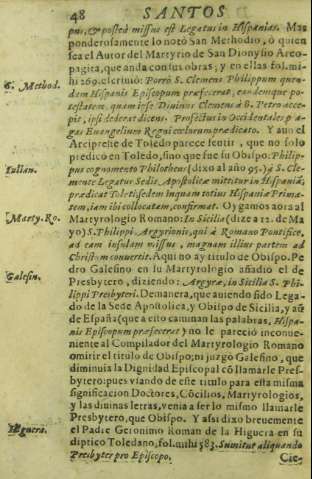 48 SANTOS
pus, & posteà missus est Legatus in Hispanias. Mas
ponderosamente lo notò San Methodio, ò quien
sea el Autor del Martyrio de San Dionysio Areo-
pagita, que anda con sus obras; y en ellas fol. mi-
S. Method.
hi 269. escriuiò: Porrò S. Clemens Philippum quen-
dam Hispanis Episcopum præfecerat, eandemque po-
testatem, quam ipse Diuinus Clemens à B. Petro acce-
pit, ipsi dederat dicens. Profectus in Occidentales pa-
gas Euangelium Regni cœlorum prædicato. Y aun el
Arcipreste de Toledo parece sentir, que no solo
predicò en Toledo, sino que fue su Obispo: Philip-
Iulian.
pus cognomento Philotheus (dixo al año 95.) à S. Cle-
mente Legatus Sedis Apostolicæ mittitur in Hispaniā,
prædicat Toleti, sedem inquam totius Hispaniæ Prima-
tem, iam ibi collocatam, confirmat. Oygamos aora al
Marty. Ro.
Martyrologio Romano: In Sicilia (dize a 12. de Ma-
yo) S. Philippi, Argyrionis, qui à Romano Pontifice,
ad eam insulam missus, magnam illius partem ad
Christum conuertit. Aqui no ay titulo de Obispo. Pe-
Galesin.
dro Galesino en su Martyrologio añadio el de
Presbytero, diziendo: Argyræ, in Sicilia S. Phi-
lippi Presbyteri. De manera, que auiendo sido Lega-
do de la Sede Apostolica, y Obispo de Sicilia, y aū
de España (que a esto caminan las palabras, Hispa-
nis Episcopum præfecerat) no le pareciò inconue-
niente al Compilador del Martyrologio Romano
omitir el titulo de Obispo; ni juzgò Galesino, que
diminuia la Dignidad Episcopal cō llamarle Pres-
bytero: pues vſando de este titulo para esta misma
significacion Doctores, Cōcilios, Martyrologios,
y las diuinas letras, venia a ser lo mismo llamarle
Presbytero, que Obispo. Y assi dixo breuemente
Higuera.
el Padre Geronimo Roman de la Higuera en su
diptico Toledano, fol. mihi 583. Sumitur aliquando
Presbyter pro Episcopo,
Cie-